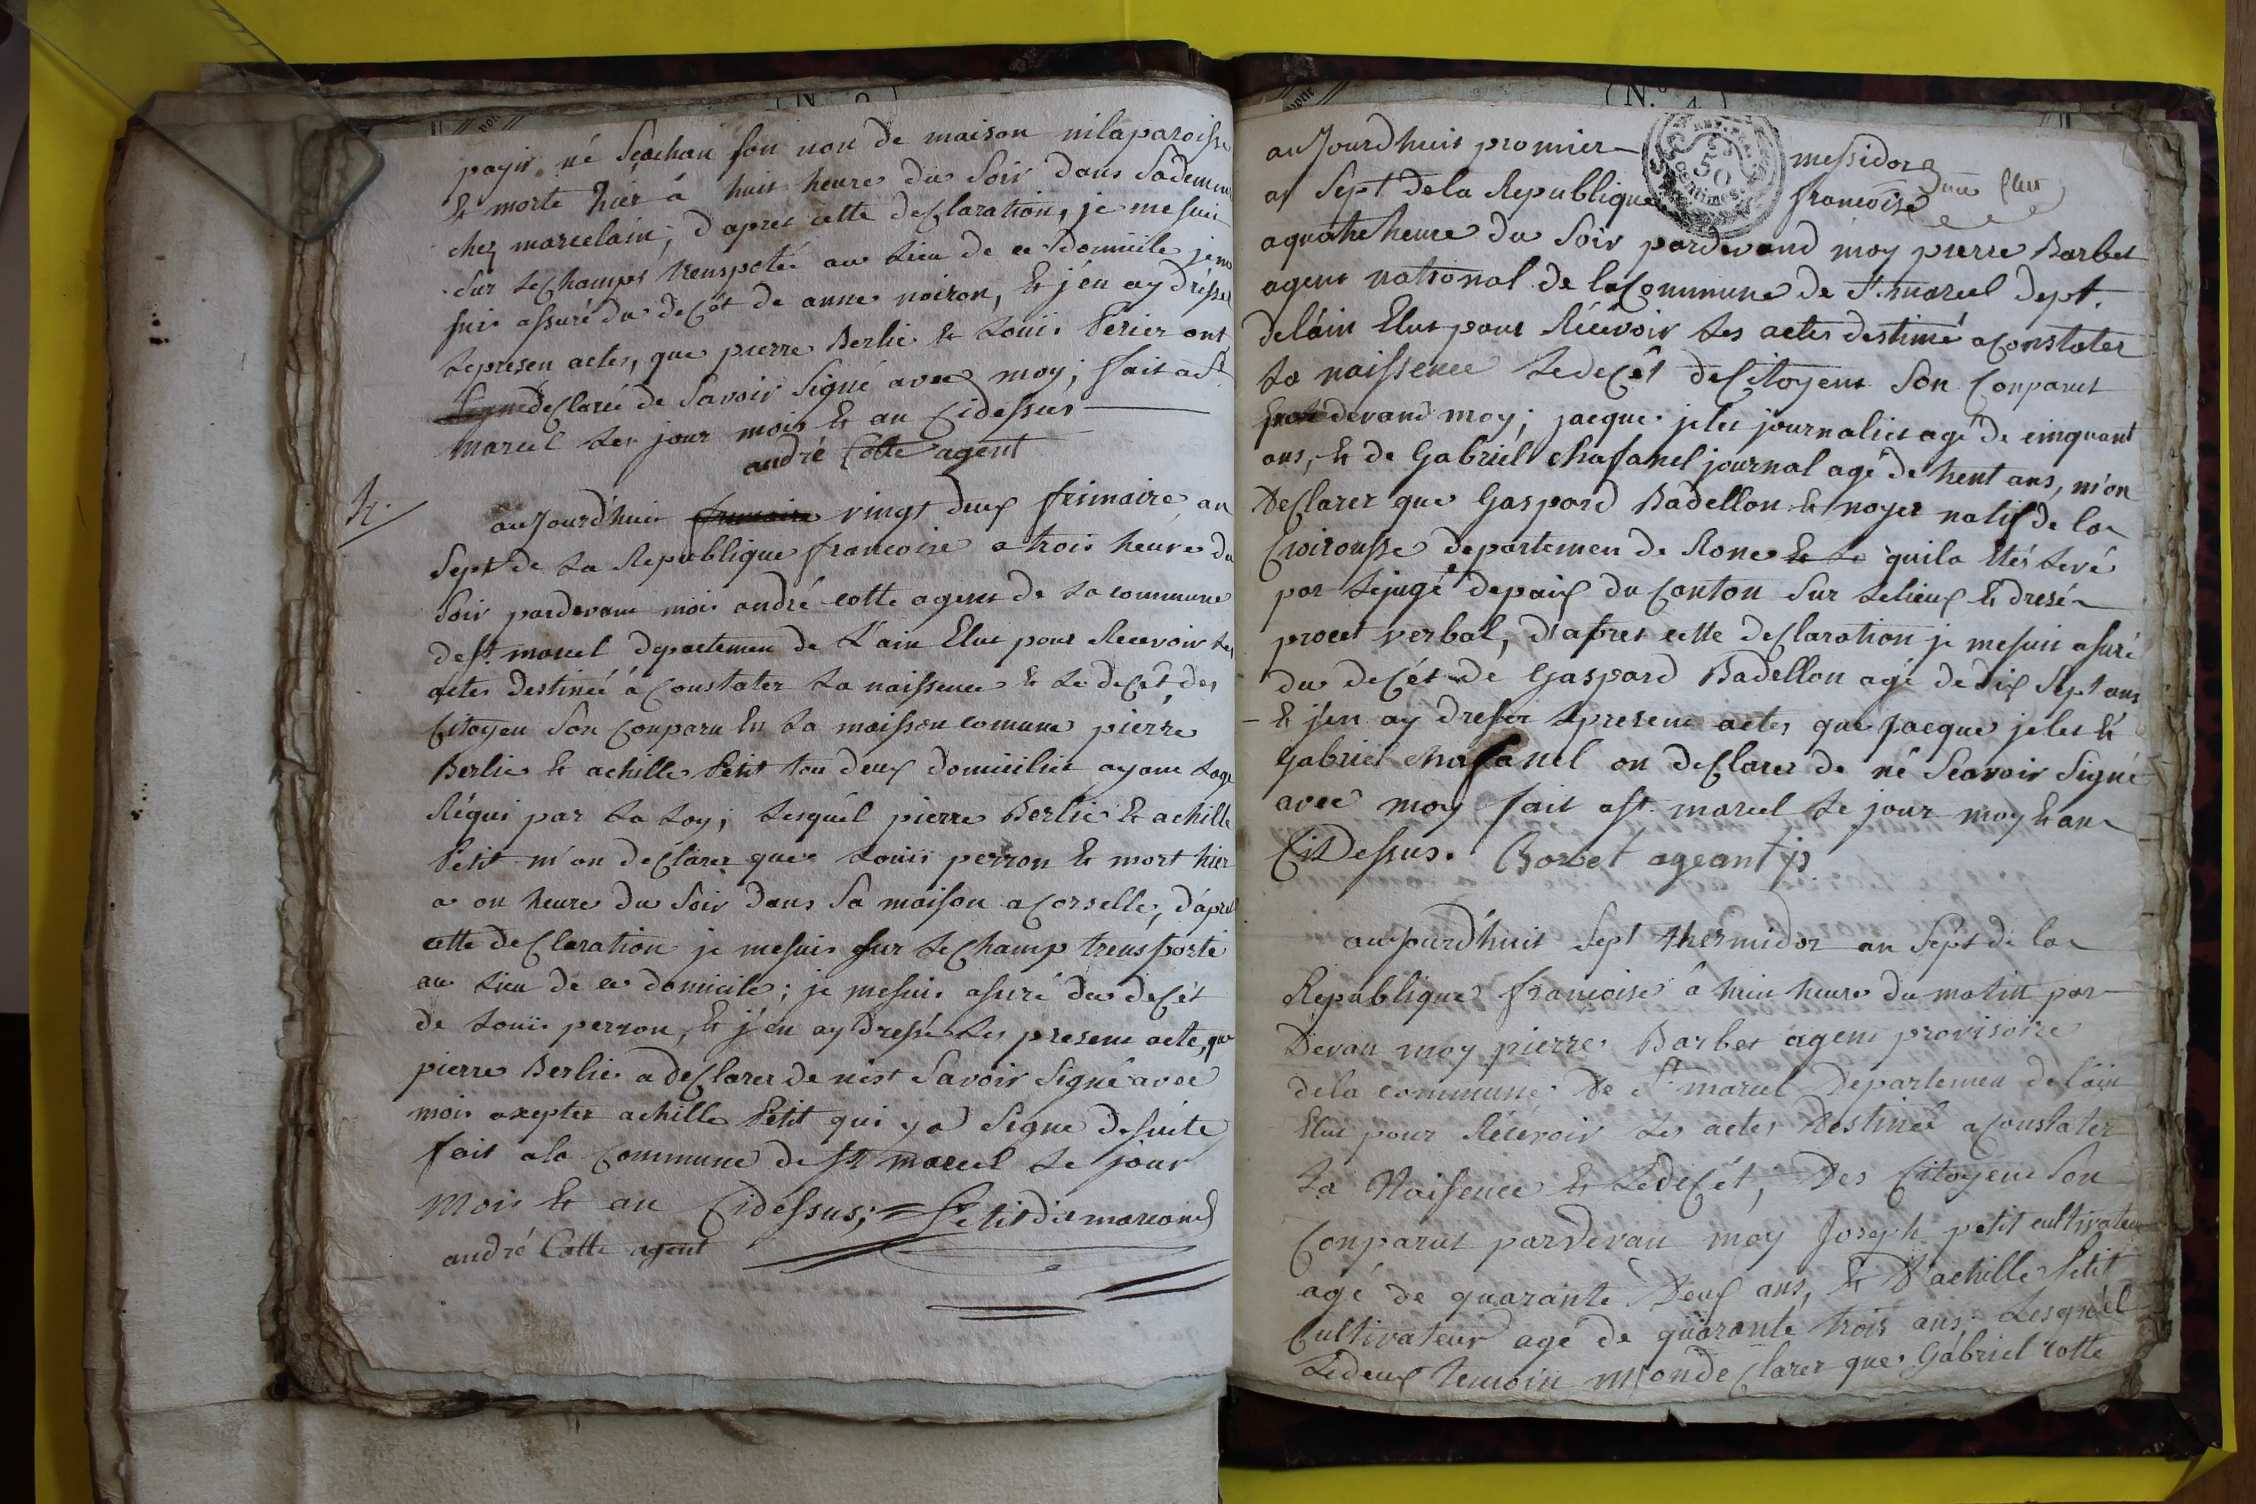 payis né Seachan son non de maison nilaparoisse
& morte hier à huit heure du Soir dans Sademeur
chez marcelain; d'apret cette declaration, je me suis
Sur le Champs transpoté au Lieu de ce domicile je me
suis assuré du decèt de anne noiron, & j'en ay drésse
Le presen actes, que pierre Berlie & Louis Perier ont
declaré de Savoir Signé avec moy; fait a St
marcel Les jour mois & an Cidessus
andré Cotte agent
aujourdhuis vingt deux frimaire an
Sept de La Republique francoise a trois heure du
Soir pardevant mois andré cotte agent de La commune
de St. marcel departemen de L'ain Elut pour Recevoir Les
actes destinéé à Constater La naissence & Le decèt des
Citoyen Son Conparu En La maisson comune pierre
Berlie & achille Petit tou deux domicilié ayant Lage
Réqui par La Loy, Lesquél pierre Berlié & achille
Petit m'on déclarer que Louis perron & mort hier
a on heure du Soir dans Sa maison a Corselle, d'apret
cette declaration je mesuis sur Le Champ trensporté
au Lieu de ce domicile; je mesuis asuré du decét
de Louis perron, & j'en ay dressé Les present acte, que
pierre Berlie a declarer de nest Savoir Signé avec
mois axepter achille Petit qui y a Signe desuite
fait a la Commune de St marcel Le jour
Mois & an Cidessus; Petit dit marcond
andré Cotte agent
(N.° 4)
aujourdhuit promier messidor
an Sept dela Republique francoise
50 centimes
a quatre heure du Soir pardevand moy pierre Barbet
agent national de la Commune de St. marcel dept.
de l'ain Elut pour Récévoir Les actes destiné a Constater
La naissence Le decét de Citoyent Son Conparut
devand moy; jacque jeles journalier agé de cinquant
ans, & de Gabriél chafanel journal agé de trent ans, m'on
declarer que Gaspard Badellon & noyer natif de la
Croirousse departemen de Rone & Le quila Etés Levé
par Lejugé depaix du Canton Sur Le lieux & dresé
procet verbal, d'apres cette declaration je mesuis asuré
du decét de Gaspard Badellon agé de dix Sept ans
& j'en ay dresser Lpresent actes que jacque jeles &
Gabriel chafanel on declarer de né Scavoir Signé
avec moy fait a St. marcel Le jour moy & an
CitDessus. Barbet ageant
aujourd'huit Sept thermidor an Sept de la
Republique francoise à huit heure du matin par
Devan moy pierre Barbet agent provisoire
de la commune De St marcel Departemen de l'ain
Elut pour Récévoir Les actes Destinét a Constater
La Naisence & Ledecét, Des Citoyent Son
Conparut pardevan moy Joseph petit cultivateur
agé de quarante Deux ans, & D'achille Petit
Cultivateur agé de quarante trois ans Lesquél
Ledeux temoin m'on declarer que Gabriel Cotte